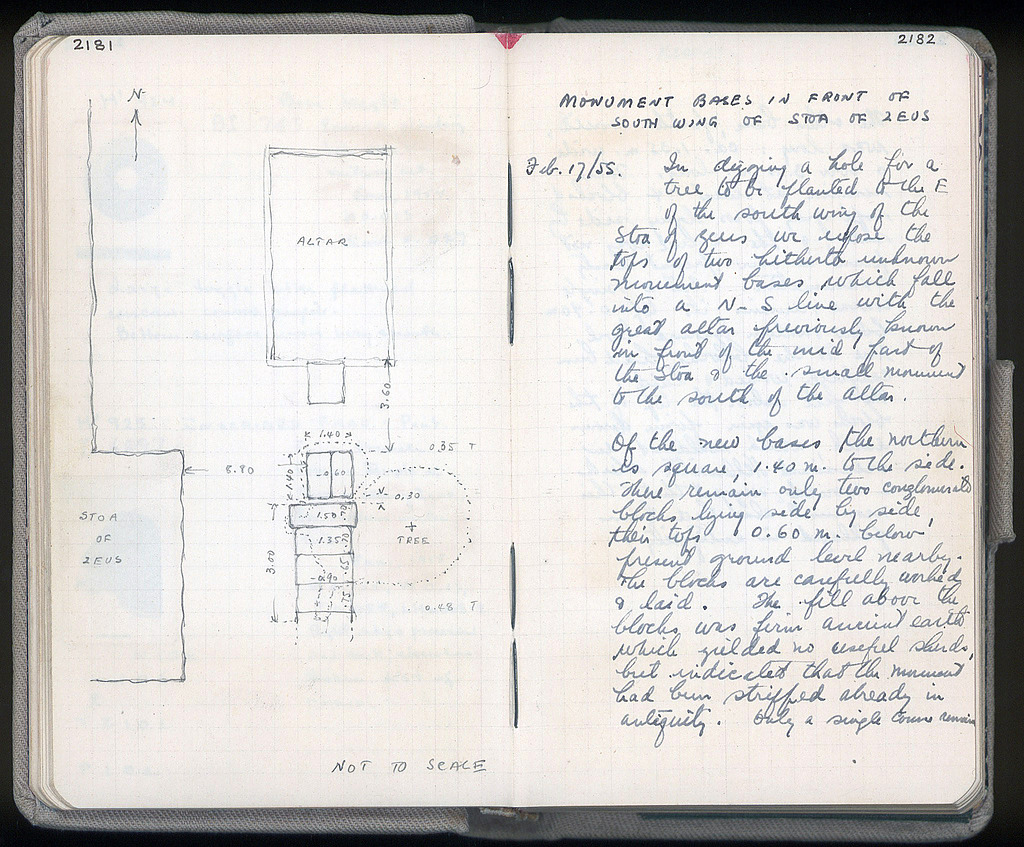 2181
N
ALTAR
3.60
1.40
0.35 T
8.90
1.40
-0.60
0.30
1.50
.70
+
TREE
STOA
OF
ZEUS
1.35
.70
3.00
.65
-0.90
.75
0.48 T
NOT TO SCALE
2182
MONUMENT BASES IN FRONT OF
SOUTH WING OF STOA OF ZEUS
Feb. 17/55. In digging a hole for a
tree to be planted to the E
of the south wing of the
Stoa of Zeus we expose the
tops of two hitherto unknown
monument bases which fall
into a N-S line with the
great altar previously known
in front of the mid part of
the Stoa & the small monument
to the south of the altar.
Of the new bases the northern
is square, 1.40 m. to the side.
There remain only two conglomerate
blocks lying side by side,
their tops 0.60 m. below
present ground level nearby.
The blocks are carefully worked
& laid. The fill above the
blocks was firm ancient earth
which yielded no useful sherds,
but indicated that the monument
had been stripped already in
antiquity. Only a single course remains